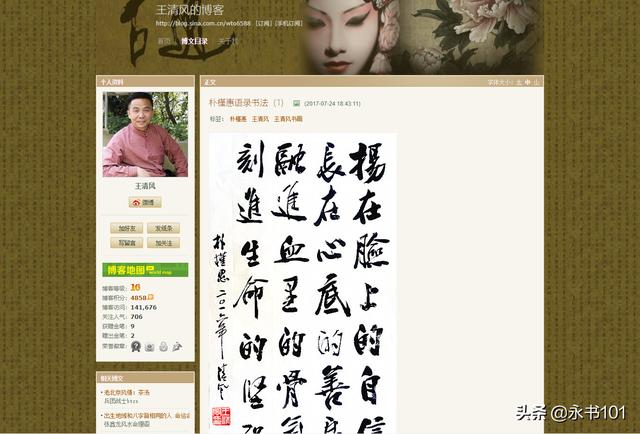 王清风的博客
http://blog.sina.com.cn/wto6588 [订阅] [手机订阅]
首页 博文目录 关于我
个人资料
王清风
微博
加好友 发纸条
写留言 加关注
博客地图
world map
博客等级：16
博客积分：4858
博客访问：141,676
关注人气：706
获赠金笔：9
赠出金笔：2
荣誉徽章：
相关博文
老北京风情：茶汤
出生地域和八字皆相同的人 命运
张鑫龙风水命理师
正文 字体大小：大 中 小
朴槿惠语录书法（1） (2017-07-24 18:43:11)
标签： 朴槿惠 王清风 王清风书画
揚在臉上的自信
長在心底的善
融進血里的骨氣
刻進生命的堅
朴槿惠 二〇一六年 清风
头条 @永书101